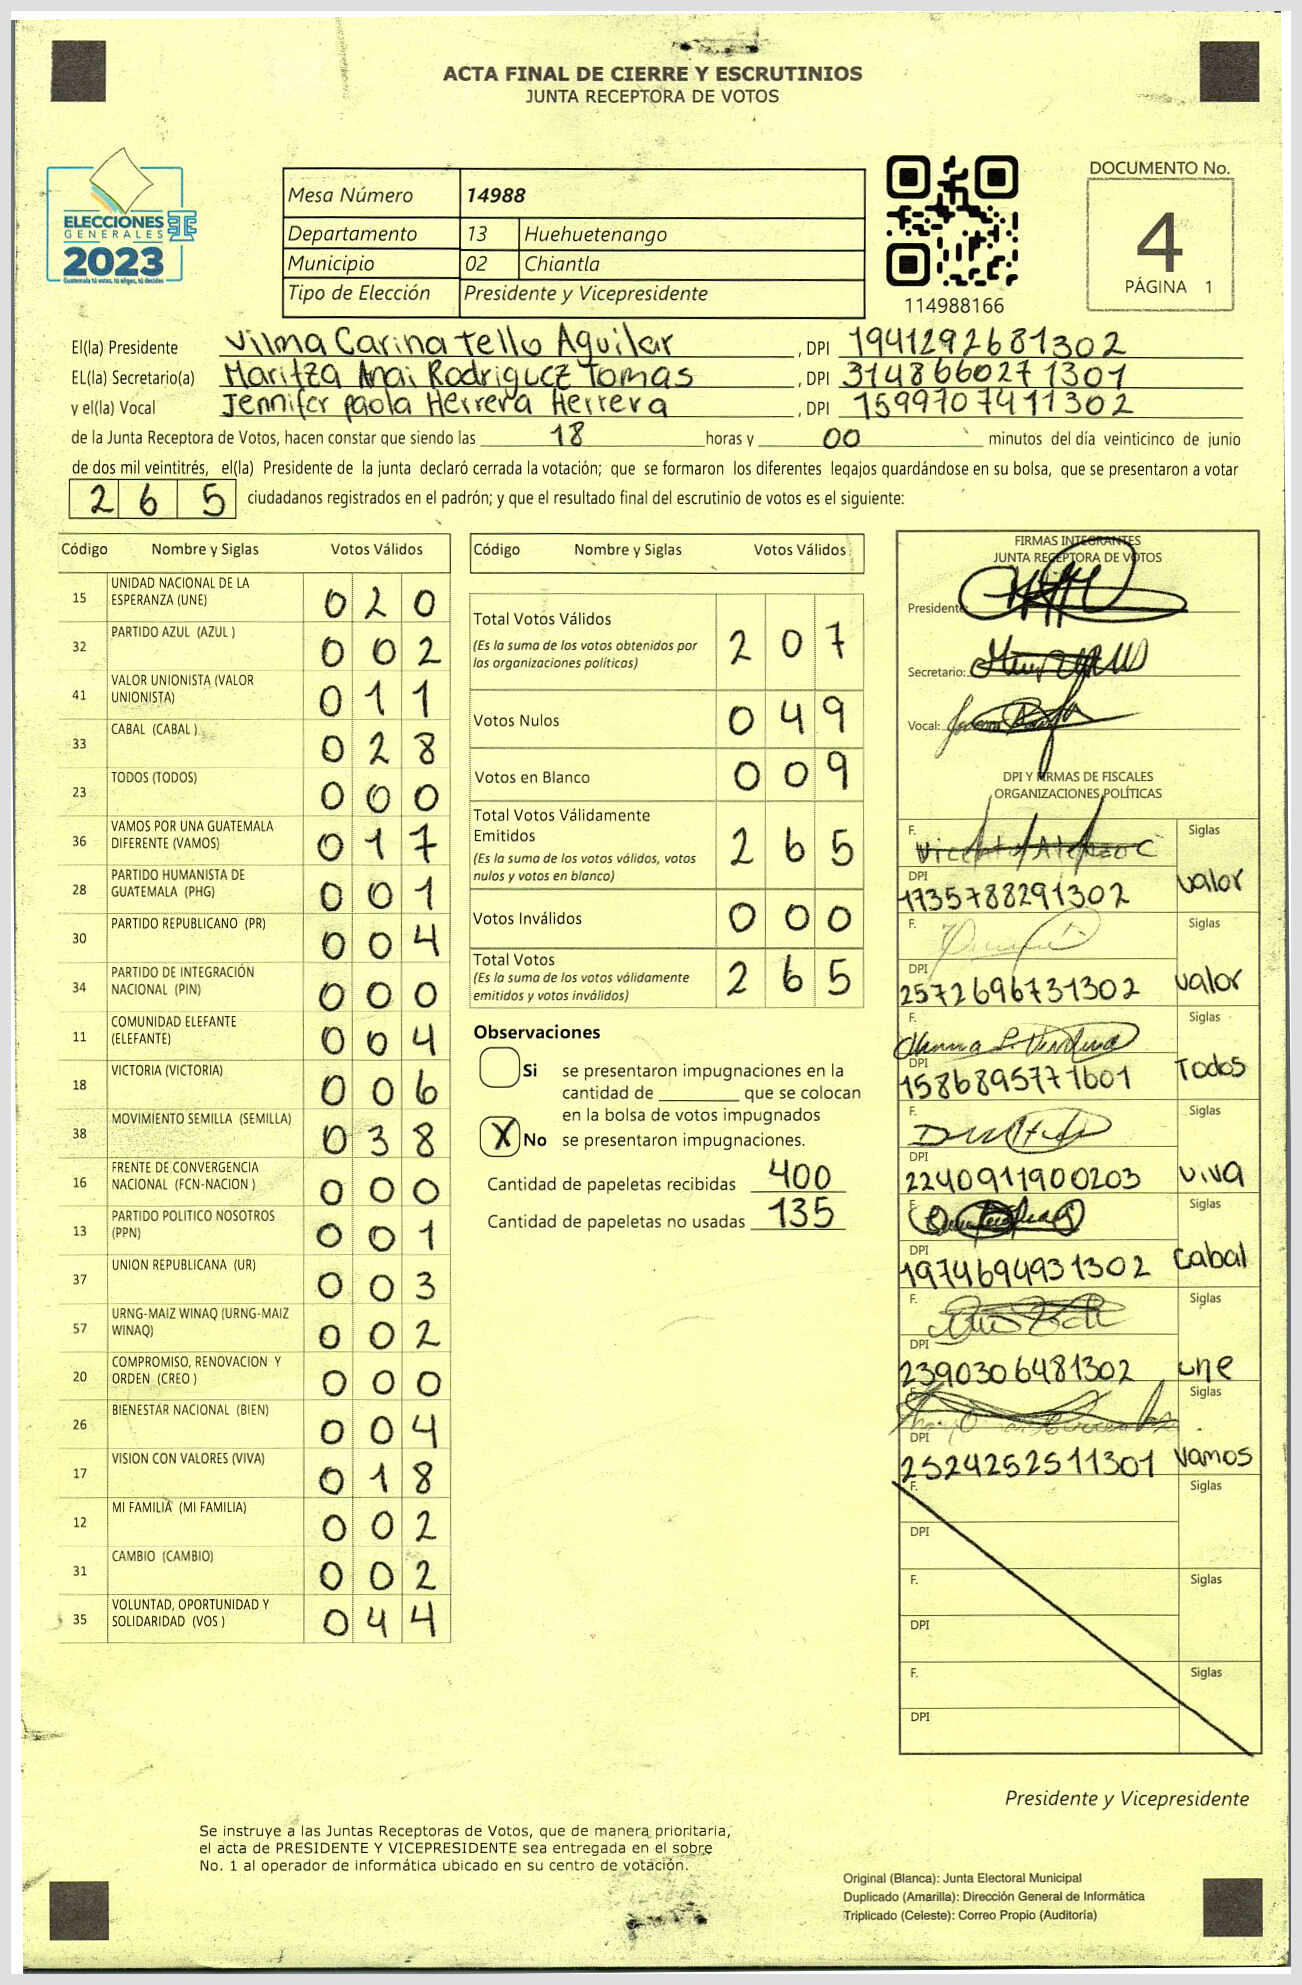 ACTA FINAL DE CIERRE Y ESCRUTINIOS
JUNTA RECEPTORA DE VOTOS
ELECCIONES
GENERALES
2023
Guatemala tú votas, tú eliges, tú decides
Mesa Número 14988
Departamento 13 Huehuetenango
Municipio 02 Chiantla
Tipo de Elección Presidente y Vicepresidente
114988166
DOCUMENTO No.
4
PÁGINA 1
El(la) Presidente Vilma Carina Tello Aguilar, DPI 1941292681302
EL(la) Secretario(a) Maritza Anai Rodriguez Tomas, DPI 3148660271301
y el(la) Vocal Jennifer paola Herrera Herrera, DPI 1599707411302
de la Junta Receptora de Votos, hacen constar que siendo las 18 horas y 00 minutos del día veinticinco de junio
de dos mil veintitrés, el(la) Presidente de la junta declaró cerrada la votación; que se formaron los diferentes legajos guardándose en su bolsa, que se presentaron a votar
265 ciudadanos registrados en el padrón; y que el resultado final del escrutinio de votos es el siguiente:
Código Nombre y Siglas Votos Válidos
15 UNIDAD NACIONAL DE LA ESPERANZA (UNE) 020
32 PARTIDO AZUL (AZUL ) 002
41 VALOR UNIONISTA (VALOR UNIONISTA) 011
33 CABAL (CABAL ) 028
23 TODOS (TODOS) 000
36 VAMOS POR UNA GUATEMALA DIFERENTE (VAMOS) 017
28 PARTIDO HUMANISTA DE GUATEMALA (PHG) 001
30 PARTIDO REPUBLICANO (PR) 004
34 PARTIDO DE INTEGRACIÓN NACIONAL (PIN) 000
11 COMUNIDAD ELEFANTE (ELEFANTE) 004
18 VICTORIA (VICTORIA) 006
38 MOVIMIENTO SEMILLA (SEMILLA) 038
16 FRENTE DE CONVERGENCIA NACIONAL (FCN-NACION ) 000
13 PARTIDO POLITICO NOSOTROS (PPN) 001
37 UNION REPUBLICANA (UR) 003
57 URNG-MAIZ WINAQ (URNG-MAIZ WINAQ) 002
20 COMPROMISO, RENOVACION Y ORDEN (CREO ) 000
26 BIENESTAR NACIONAL (BIEN) 004
17 VISION CON VALORES (VIVA) 018
12 MI FAMILIA (MI FAMILIA) 002
31 CAMBIO (CAMBIO) 002
35 VOLUNTAD, OPORTUNIDAD Y SOLIDARIDAD (VOS ) 044
Código Nombre y Siglas Votos Válidos
Total Votos Válidos 207
(Es la suma de los votos obtenidos por
las organizaciones políticas)
Votos Nulos 049
Votos en Blanco 009
Total Votos Válidamente
Emitidos 265
(Es la suma de los votos válidos, votos
nulos y votos en blanco)
Votos Inválidos 000
Total Votos 265
(Es la suma de los votos válidamente
emitidos y votos inválidos)
Observaciones
Si se presentaron impugnaciones en la
cantidad de ________ que se colocan
en la bolsa de votos impugnados
X No se presentaron impugnaciones.
Cantidad de papeletas recibidas 400
Cantidad de papeletas no usadas 135
FIRMAS INTEGRANTES
JUNTA RECEPTORA DE VOTOS
Presidente:
Secretario:
Vocal:
DPI Y FIRMAS DE FISCALES
ORGANIZACIONES POLÍTICAS
F. Siglas
DPI 1735788291302 valor
F. Siglas
DPI 2572696731302 valor
F. Siglas
DPI 1586895771601 Todos
F. Siglas
DPI 2240911900203 viva
F. Siglas
DPI 1974694931302 Cabal
F. Siglas
DPI 2390306481302 une
F. Siglas
DPI 2524252511301 vamos
F. Siglas
DPI
F. Siglas
DPI
F. Siglas
DPI
Presidente y Vicepresidente
Se instruye a las Juntas Receptoras de Votos, que de manera prioritaria,
el acta de PRESIDENTE Y VICEPRESIDENTE sea entregada en el sobre
No. 1 al operador de informática ubicado en su centro de votación.
Original (Blanca): Junta Electoral Municipal
Duplicado (Amarilla): Dirección General de Informática
Triplicado (Celeste): Correo Propio (Auditoría)